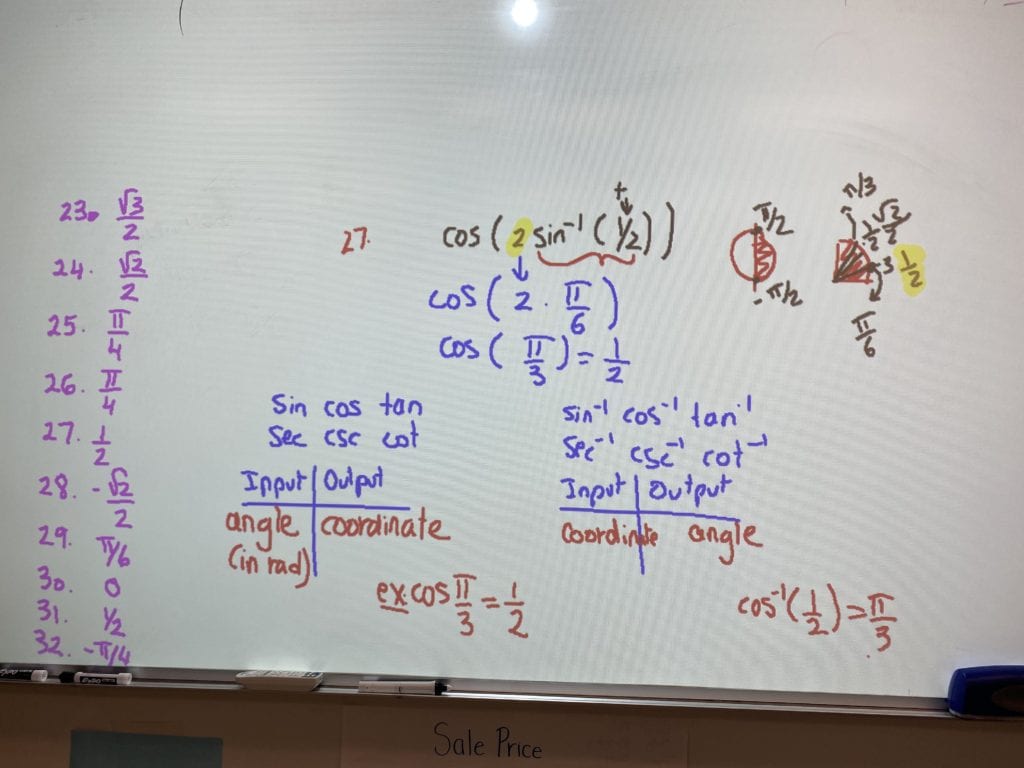 23. √3/2
24. √2/2
25. π/4
26. π/4
27. 1/2
28. -√2/2
29. π/6
30. 0
31. 1/2
32. -π/4
27. cos(2 sin⁻¹(1/2))
+
cos(2 · π/6)
cos(π/3) = 1/2
π/2
-π/2
π/3
√2/2
1/2
π/6
sin cos tan
sec csc cot
Input | Output
angle | coordinate
(in rad)
ex: cos π/3 = 1/2
sin⁻¹ cos⁻¹ tan⁻¹
sec⁻¹ csc⁻¹ cot⁻¹
Input | Output
coordinate angle
cos⁻¹(1/2) = π/3
EXPO
Sale Price